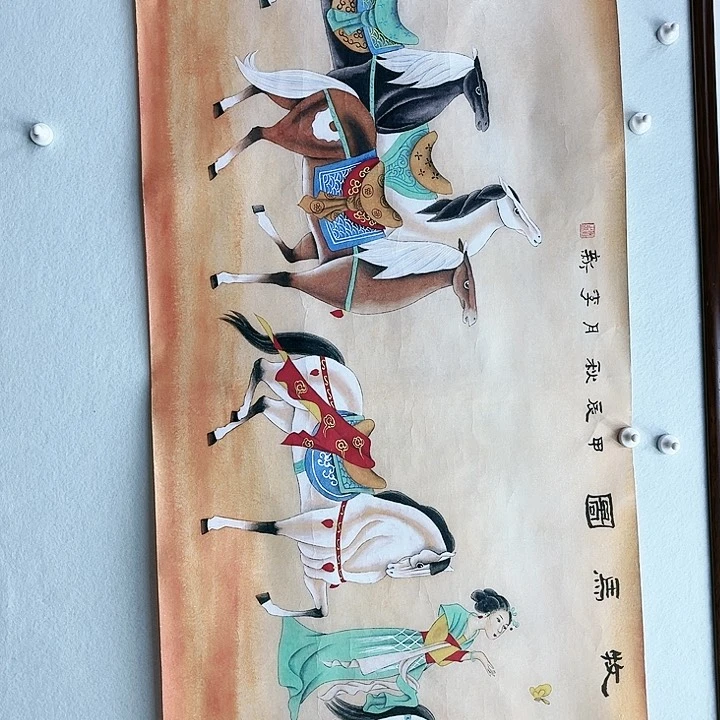 牧馬圖 甲辰秋月李新